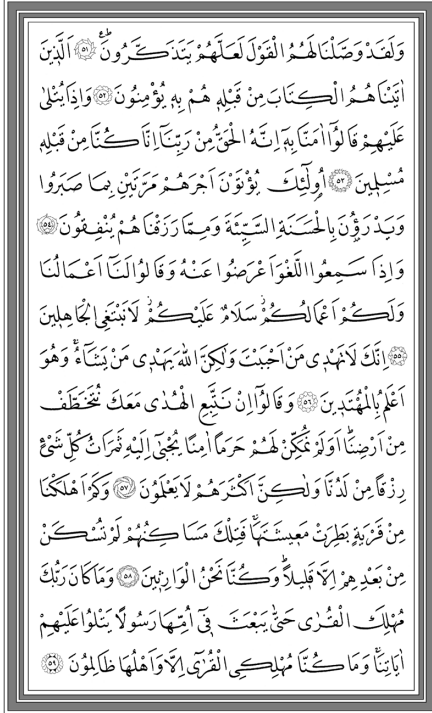 وَلَقَدْ وَصَّلْنَا لَهُمُ الْقَوْلَ لَعَلَّهُمْ يَتَذَكَّرُونَۜ ﴿٥١﴾ اَلَّذٖينَ
اٰتَيْنَاهُمُ الْكِتَابَ مِنْ قَبْلِهٖ هُمْ بِهٖ يُؤْمِنُونَ ﴿٥٢﴾ وَاِذَا يُتْلٰى
عَلَيْهِمْ قَالُٓوا اٰمَنَّا بِهٖٓ اِنَّهُ الْحَقُّ مِنْ رَبِّنَٓا اِنَّا كُنَّا مِنْ قَبْلِهٖ
مُسْلِمٖينَ ﴿٥٣﴾ اُو۬لٰٓئِكَ يُؤْتَوْنَ اَجْرَهُمْ مَرَّتَيْنِ بِمَا صَبَرُوا
وَيَدْرَؤُ۫نَ بِالْحَسَنَةِ السَّيِّئَةَ وَمِمَّا رَزَقْنَاهُمْ يُنْفِقُونَ ﴿٥٤﴾
وَاِذَا سَمِعُوا اللَّغْوَ اَعْرَضُوا عَنْهُ وَقَالُوا لَنَٓا اَعْمَالُنَا
وَلَكُمْ اَعْمَالُكُمْۘ سَلَامٌ عَلَيْكُمْۘ لَا نَبْتَغِي الْجَاهِلٖينَ
﴿٥٥﴾ اِنَّكَ لَا تَهْدٖي مَنْ اَحْبَبْتَ وَلٰكِنَّ اللّٰهَ يَهْدٖي مَنْ يَشَٓاءُۚ وَهُوَ
اَعْلَمُ بِالْمُهْتَدٖينَ ﴿٥٦﴾ وَقَالُٓوا اِنْ نَتَّبِعِ الْهُدٰى مَعَكَ نُتَخَطَّفْ
مِنْ اَرْضِنَاۜ اَوَلَمْ نُمَكِّنْ لَهُمْ حَرَماً اٰمِناً يُجْبٰٓى اِلَيْهِ ثَمَرَاتُ كُلِّ شَيْءٍ
رِزْقاً مِنْ لَدُنَّا وَلٰكِنَّ اَكْثَرَهُمْ لَا يَعْلَمُونَ ﴿٥٧﴾ وَكَمْ اَهْلَكْنَا
مِنْ قَرْيَةٍ بَطِرَتْ مَعٖيشَتَهَاۚ فَتِلْكَ مَسَاكِنُهُمْ لَمْ تُسْكَنْ
مِنْ بَعْدِهِمْ اِلَّا قَلٖيلاًۜ وَكُنَّا نَحْنُ الْوَارِثٖينَ ﴿٥٨﴾ وَمَا كَانَ رَبُّكَ
مُهْلِكَ الْقُرٰى حَتّٰى يَبْعَثَ فٖٓي اُمِّهَا رَسُولاً يَتْلُوا عَلَيْهِمْ
اٰيَاتِنَاۚ وَمَا كُنَّا مُهْلِكِي الْقُرٰٓى اِلَّا وَاَهْلُهَا ظَالِمُونَ ﴿٥٩﴾